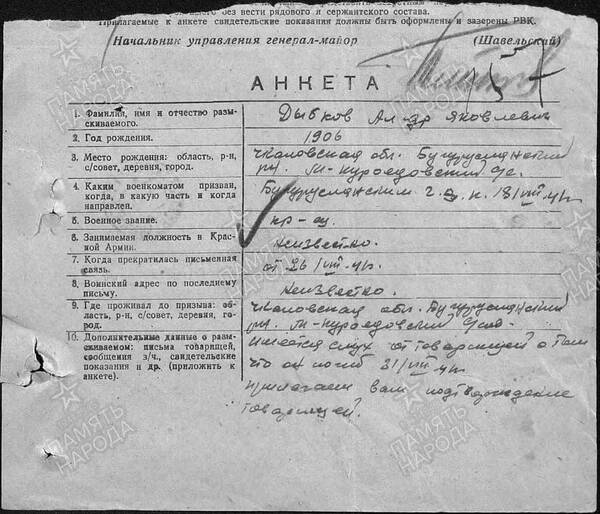 щего без вести рядового и сержантского состава.
Прилагаемые к анкете свидетельские показания должны быть оформлены и заверены РВК.
Начальник управления генерал-майор (Шавельский)
АНКЕТА
1. Фамилия, имя и отчество разыскиваемого.
Дыбков Ал-др Яковлевич
2. Год рождения.
1906
3. Место рождения: область, р-н, с/совет, деревня, город.
Чкаловская обл. Бугурусланский
рн. М-Куроедовский с/с.
4. Каким военкоматом призван, когда, в какую часть и когда направлен.
Бугурусланским 18/VIII 41г.
5. Военное звание.
кр-ец
6. Занимаемая должность в Красной Армии.
Неизвестно.
7. Когда прекратилась письменная связь.
от 26/VIII-41г.
8. Воинский адрес по последнему письму.
Неизвестно.
9. Где проживал до призыва: область, р-н, с/совет, деревня, город.
Чкаловская обл. Бугурусланский
рн. М-Куроедовский
10. Дополнительные данные о разыскиваемом: письма товарищей, сообщения з/ч., свидетельские показания и др. (приложить к анкете).
Имеется слух от товарищей о том
что он погиб 31/VIII-41г
прилагаем вам подтверждение
товарищей.
ПАМЯТЬ НАРОДА